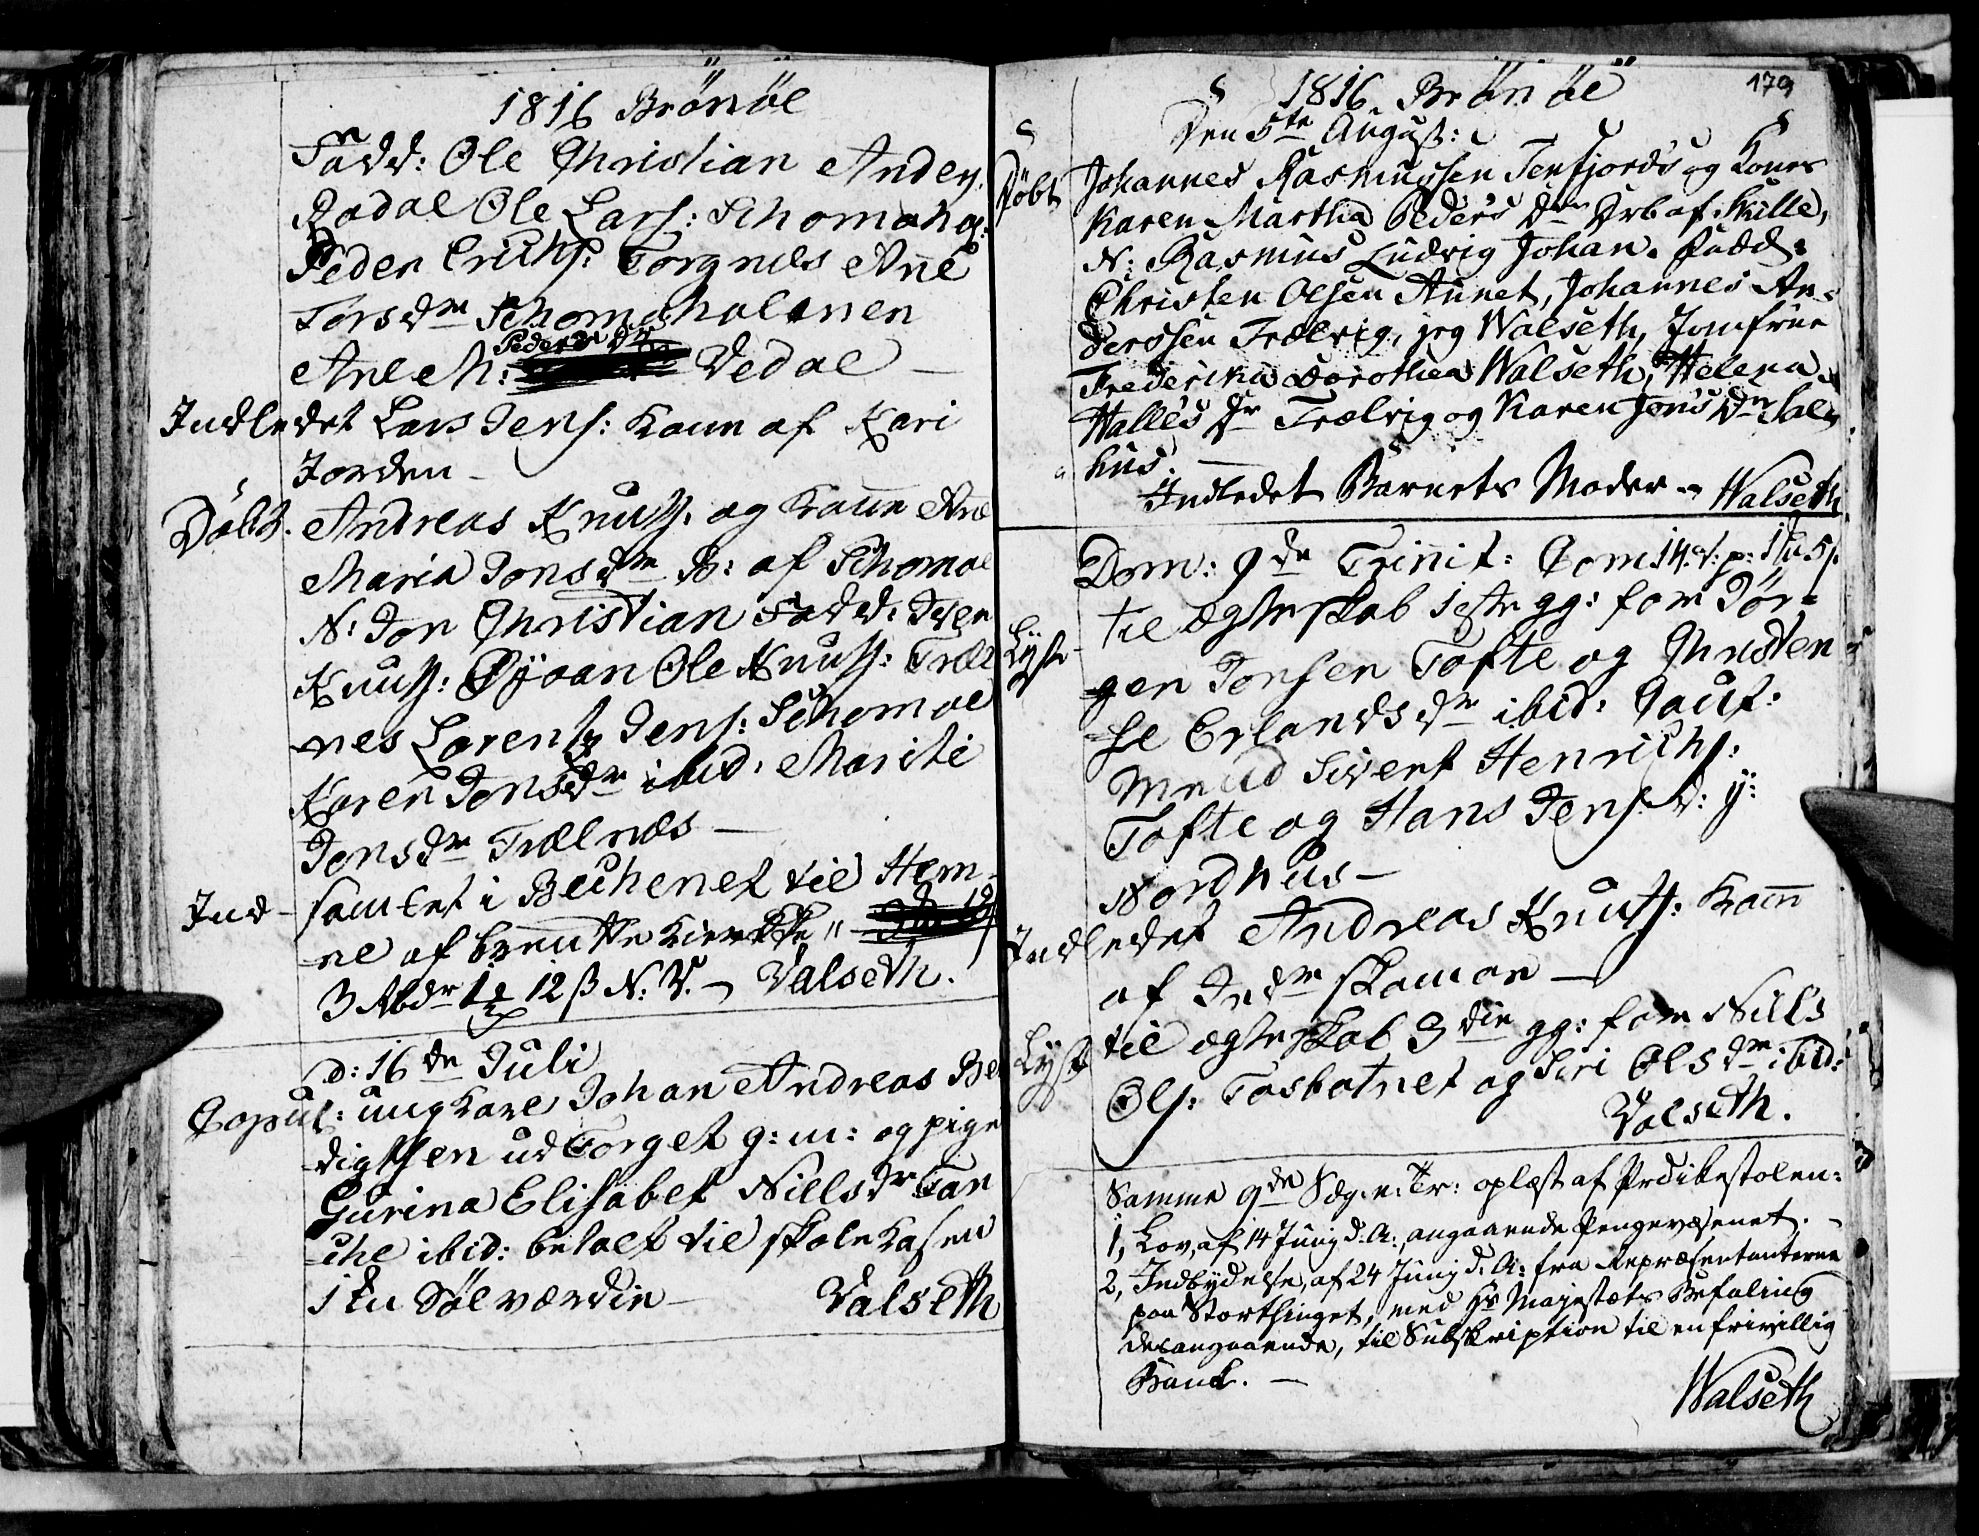 1816 Brönöe
Fadd: Ole Christian Anders:
Rodal Ole Lars: Schomoh og:
Peder Erichs: Torgnæs Ane
Torsdr Schomoholmen
Ane M: Peders dr Vedal —
Indledet Lars Jens: Kone af Kari
Jorden —
Döbt. Andreas Knuts: og Kone Ane
Maria Jonsdr B: af Schomoe
N: Jon Christian Fadd: Iver
Knuts: Öÿvan Ole Knuts: Træl
næs Lorentz Jens: Schomoe
Karen Jonsdr ibid: Marite
Jonsdr Trælnæs —
Ind- samlet i Bechenet til Hem-
ne af brendte Kierke
3 Rbdr 1½ 12 ß N: V. — Valseth.
d: 16de Juli
Copul: ungkarl Johan Andreas Be
digtsen ud Torget g: m: og pige
Gurina Elisabet Nielsdr Tan
che ibid: betalt til skolekasen
1 du Sölværdie — Valseth
179
1816. Brönöe
Den 5te August:
Döbt Johannes Rasmussen Tenfjords og Kones
Karen Martha Peders dr Drb af: Kulle,
N: Rasmus Ludvig Johan. Fadd:
Christen Olsen Aunet, Johannes An-
derssen Trælvig, jeg Walseth, Jomfrue
Frederika Dorothea Walseth, Helena
Halles Dr Trælvig og Karen Jons Dr Sal-
hus. —
Indledet Barnets Moder — Walseth
Dom: 9de Trinit: Com 14.
Lyst til ægteskab 1ste gg: for Jör-
gen Jonsen Tofte og Christen
se Erlandsdr ibid: Caut:
Sivert Henrichs:
Tofte og Hans Jens: d: y:
Nordhus —
Indledet Andreas Knuts: Kone
af Indr skomoe —
Lyst til ægteskab 3die gg: for Niels
Ols: Tosbotnet og Siri Olsdr ibid:
Valseth.
Samme 9de Søg. e. Tr: oplæst af Prdikestolen:
1, Lov, af 14 Junij d: A:, angaaende Pengevæsenet. —
2, Indbydelse, af 24 Junij d: A: fra Repræsentanterne
paa Storthinget, med Hs Majestæts Befaling
desangaaende, til Subskription til en frivillig
Bank. —
Walseth